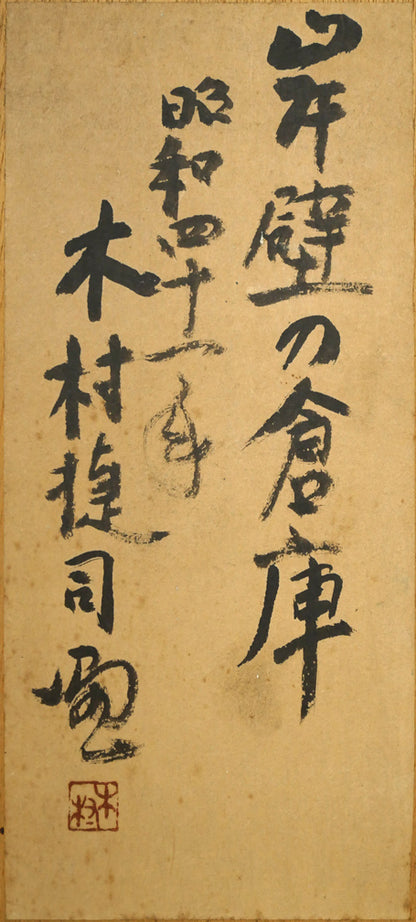 岸壁の倉庫
昭和四十一年
木村捷司画
木村